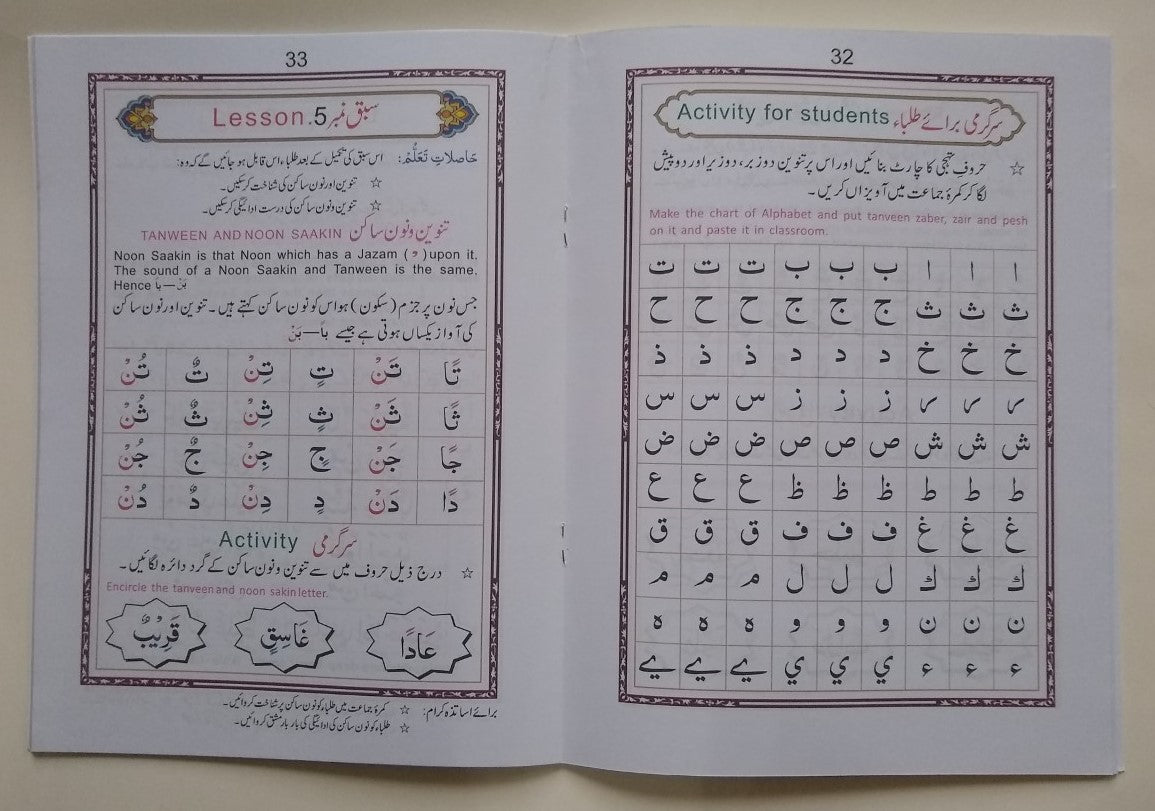 32
Activity for students سرگرمی برائے طلباء
☆ حروفِ تہجی کا چارٹ بنائیں اور اس پر تنوین دو زبر، دو زیر اور دو پیش
لگا کر کمرۂ جماعت میں آویزاں کریں۔
Make the chart of Alphabet and put tanveen zaber, zair and pesh
on it and paste it in classroom.
ا ا ا ب ب ب ت ت ت
ث ث ث ج ج ج ح ح ح
خ خ خ د د د ذ ذ ذ
ر ر ر ز ز ز س س س
ش ش ش ص ص ص ض ض ض
ط ط ط ظ ظ ظ ع ع ع
غ غ غ ف ف ف ق ق ق
ك ك ك ل ل ل م م م
ن ن ن و و و ه ه ه
ء ء ء ي ي ي ے ے ے
33
Lesson.5 سبق نمبر
حَاصلاتِ تَعَلُّمْ: اس سبق کی تکمیل کے بعد طلباء اس قابل ہو جائیں گے کہ وہ:
☆ تنوین اور نون ساکن کی شناخت کر سکیں۔
☆ تنوین و نون ساکن کی درست ادائیگی کر سکیں۔
TANWEEN AND NOON SAAKIN تنوین و نون ساکن
Noon Saakin is that Noon which has a Jazam ( ْ ) upon it.
The sound of a Noon Saakin and Tanween is the same.
Hence بَنْ — بًا
جس نون پر جزم (سکون) ہو اس کو نون ساکن کہتے ہیں۔ تنوین اور نون ساکن
کی آواز یکساں ہوتی ہے جیسے بًا — بَنْ
تًا تَنْ تٍ تِنْ تٌ تُنْ
ثًا ثَنْ ثٍ ثِنْ ثٌ ثُنْ
جًا جَنْ جٍ جِنْ جٌ جُنْ
دًا دَنْ دٍ دِنْ دٌ دُنْ
Activity سرگرمی
☆ درج ذیل حروف میں سے تنوین و نون ساکن کے گرد دائرہ لگائیں۔
Encircle the tanveen and noon sakin letter.
عَادًا غَاسِقٍ قَرِيْبٌ
برائے اساتذہ کرام: ☆ کمرۂ جماعت میں طلباء کو نون ساکن پر شناخت کروائیں۔
☆ طلباء کو نون ساکن کی ادائیگی کی بار بار مشق کروائیں۔